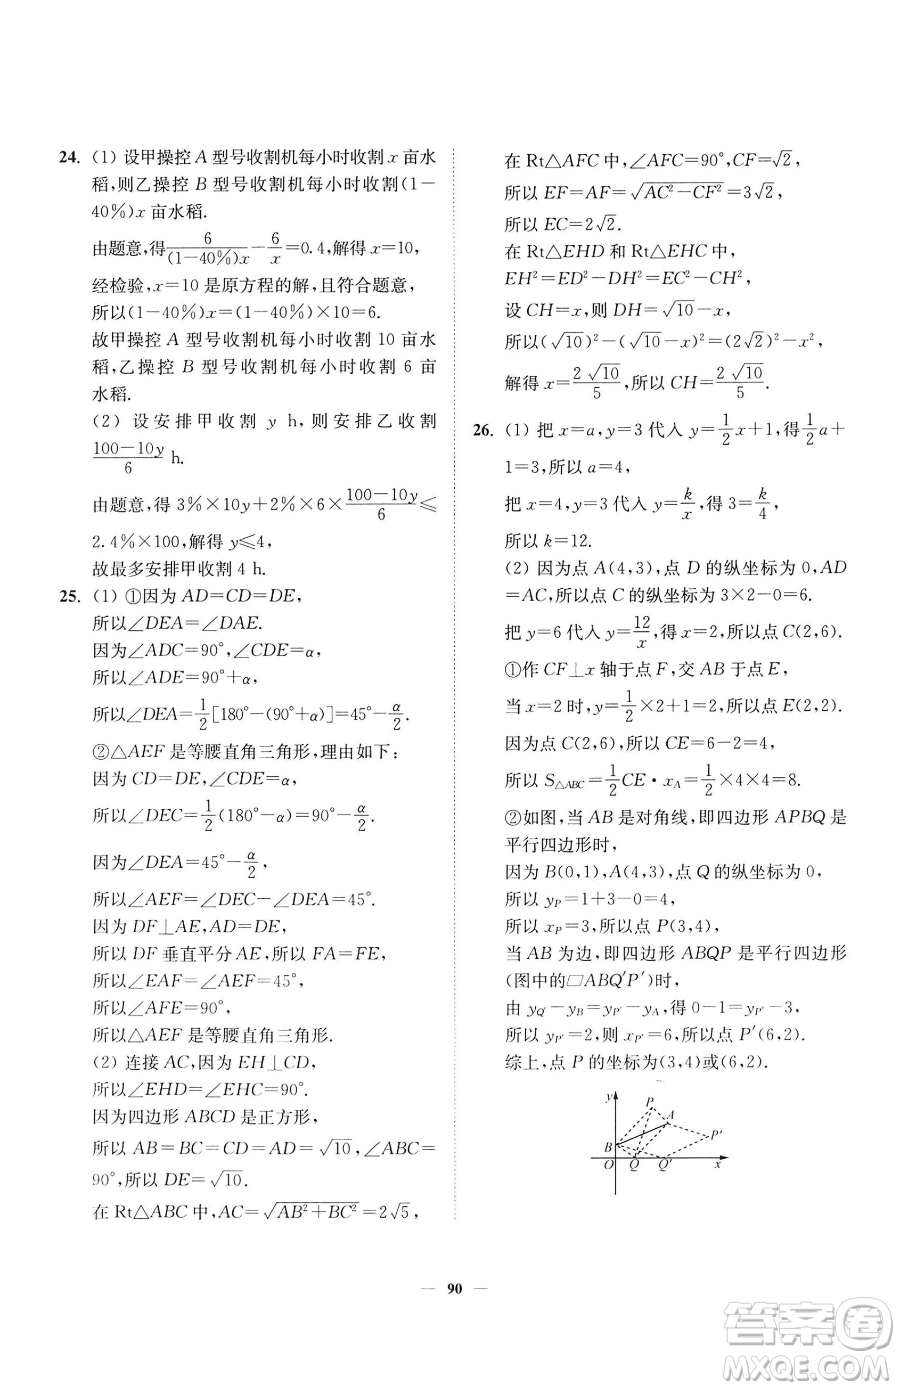 24. (1) 设甲操控 A 型号收割机每小时收割 x 亩水
稻,则乙操控 B 型号收割机每小时收割(1－
40%)x 亩水稻.
由题意,得6/((1－40%)x)－6/x＝0.4,解得 x＝10,
经检验,x＝10 是原方程的解,且符合题意,
所以(1－40%)x＝(1－40%)×10＝6.
故甲操控 A 型号收割机每小时收割 10 亩水
稻,乙操控 B 型号收割机每小时收割 6 亩
水稻.
(2) 设安排甲收割 y h,则安排乙收割
(100－10y)/6 h.
由题意,得 3%×10y＋2%×6×(100－10y)/6≤
2.4%×100,解得 y≤4,
故最多安排甲收割 4 h.
25. (1) ①因为 AD＝CD＝DE,
所以∠DEA＝∠DAE.
因为∠ADC＝90°,∠CDE＝α,
所以∠ADE＝90°＋α,
所以∠DEA＝1/2[180°－(90°＋α)]＝45°－α/2.
②△AEF 是等腰直角三角形,理由如下:
因为 CD＝DE,∠CDE＝α,
所以∠DEC＝1/2(180°－α)＝90°－α/2.
因为∠DEA＝45°－α/2,
所以∠AEF＝∠DEC－∠DEA＝45°.
因为 DF⊥AE,AD＝DE,
所以 DF 垂直平分 AE,所以 FA＝FE,
所以∠EAF＝∠AEF＝45°,
所以∠AFE＝90°,
所以△AEF 是等腰直角三角形.
(2) 连接 AC,因为 EH⊥CD,
所以∠EHD＝∠EHC＝90°.
因为四边形 ABCD 是正方形,
所以 AB＝BC＝CD＝AD＝√10,∠ABC＝
90°,所以 DE＝√10.
在 Rt△ABC 中,AC＝√(AB²＋BC²)＝2√5,
在 Rt△AFC 中,∠AFC＝90°,CF＝√2,
所以 EF＝AF＝√(AC²－CF²)＝3√2,
所以 EC＝2√2.
在 Rt△EHD 和 Rt△EHC 中,
EH²＝ED²－DH²＝EC²－CH²,
设 CH＝x,则 DH＝√10－x,
所以(√10)²－(√10－x)²＝(2√2)²－x²,
解得 x＝2√10/5,所以 CH＝2√10/5.
26. (1) 把 x＝a,y＝3 代入 y＝1/2x＋1,得1/2a＋
1＝3,所以 a＝4,
把 x＝4,y＝3 代入 y＝k/x,得 3＝k/4,
所以 k＝12.
(2) 因为点 A(4,3),点 D 的纵坐标为 0,AD
＝AC,所以点 C 的纵坐标为 3×2－0＝6.
把 y＝6 代入 y＝12/x,得 x＝2,所以点 C(2,6).
①作 CF⊥x 轴于点 F,交 AB 于点 E,
当 x＝2 时,y＝1/2×2＋1＝2,所以点 E(2,2).
因为点 C(2,6),所以 CE＝6－2＝4,
所以 S△ABC＝1/2CE·xA＝1/2×4×4＝8.
②如图,当 AB 是对角线,即四边形 APBQ 是
平行四边形时,
因为 B(0,1),A(4,3),点 Q 的纵坐标为 0,
所以 yP＝1＋3－0＝4,
所以 xP＝3,所以点 P(3,4),
当 AB 为边,即四边形 ABQP 是平行四边形
(图中的▱ABQ′P′)时,
由 yQ′－yB＝yP′－yA,得 0－1＝yP′－3,
所以 yP′＝2,则 xP′＝6,所以点 P′(6,2).
综上,点 P 的坐标为(3,4)或(6,2).
y
P
A
P′
B
O Q Q′ x
— 90 —
答案圈
MXQE.COM